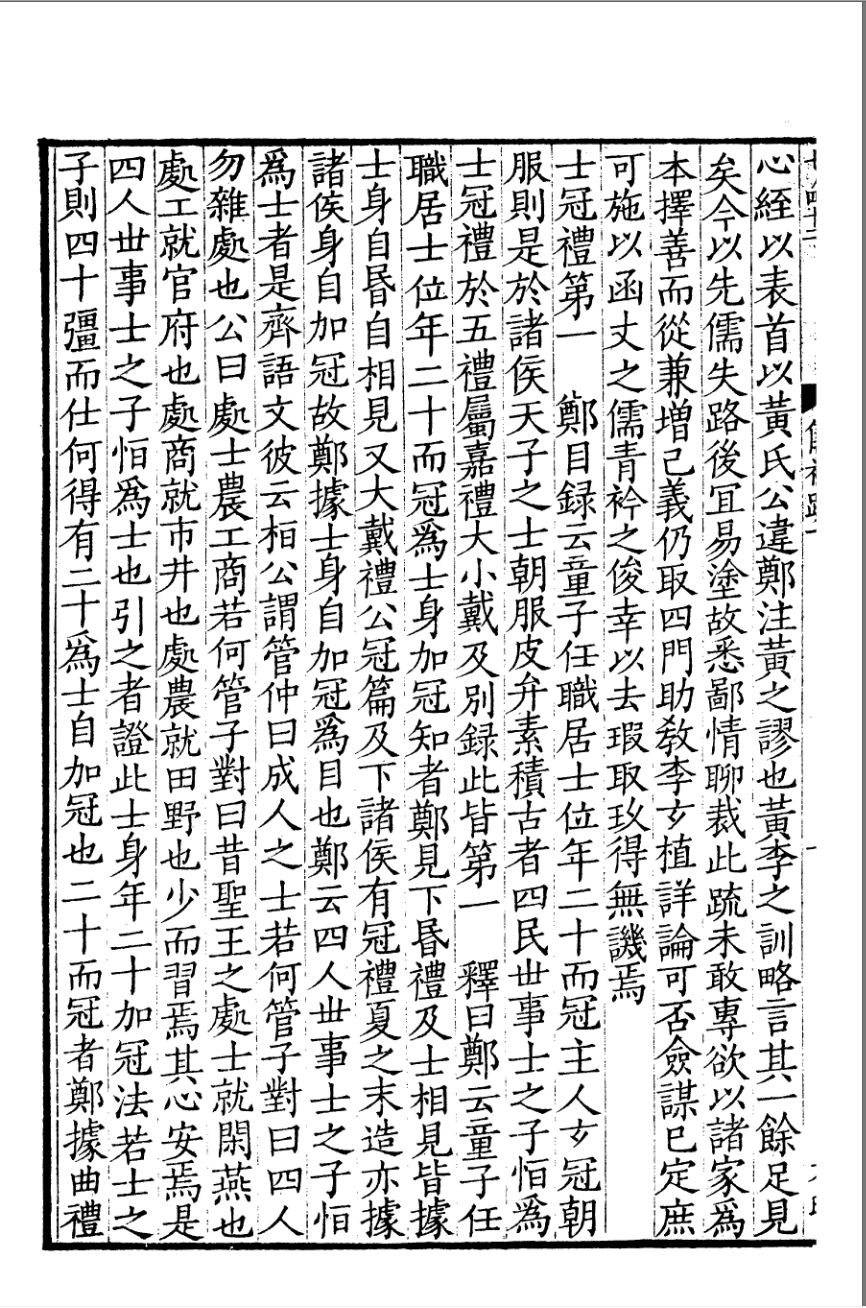 心絰以表首以黃氏公違鄭注黃之謬也黃李之訓略言其一餘足見
矣今以先儒失路後冝易塗故悉鄙情聊裁此疏未敢專欲以諸家爲
本擇善而從兼增己義仍取四門助敎李𤣥植詳論可否僉謀已定庶
可施以函丈之儒青衿之俊幸以去瑕取玖得無譏焉
士冠禮第一　鄭目録云童子任職居士位年二十而冠主人𤣥冠朝
服則是於諸侯天子之士朝服皮弁素積古者四民丗事士之子恒爲
士冠禮於五禮屬嘉禮大小戴及別録此皆第一　釋曰鄭云童子任
職居士位年二十而冠爲士身加冠知者鄭見下昏禮及士相見皆據
士身自昏自相見又大戴禮公冠篇及下諸侯有冠禮夏之末造亦據
諸侯身自加冠故鄭據士身自加冠爲目也鄭云四人丗事士之子恒
爲士者是齊語文彼云桓公謂管仲曰成人之士若何管子對曰四人
勿雜處也公曰處士農工商若何管子對曰昔聖王之處士就閑燕也
處工就官府也處商就市井也處農就田野也少而習焉其心安焉是
四人丗事士之子恒爲士也引之者證此士身年二十加冠法若士之
子則四十彊而仕何得有二十爲士自加冠也二十而冠者鄭據曲禮